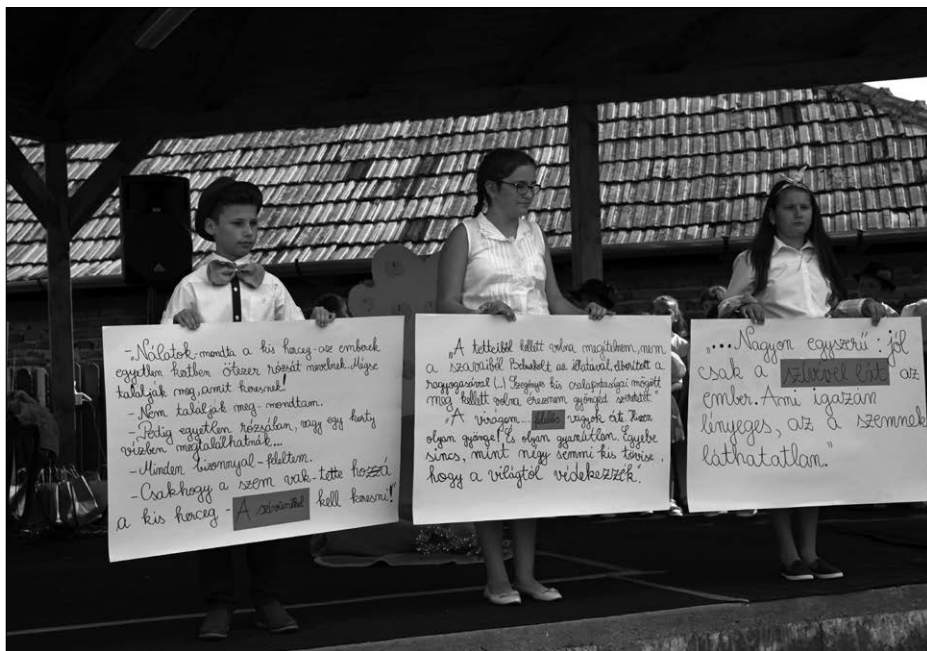 -„Nálatok-mondta a kis herceg-az emberek
egyetlen kertben ötezer rózsát nevelnek. Mégse
találják meg, amit keresnek!
-Nem találják meg-mondtam.
-„Pedig egyetlen rózsában, vagy egy korty
vízben megtalálhatnák...
-Minden bizonnyal-feleltem.
-Csakhogy a szem vak-tette hozzá
a kis herceg- A kell keresni!"
„A tetteiből kellett volna megítélnem, nem
a szavaiból Beburkolt az illatával, elborított a
ragyogásával (...) Szegényes kis csalafintaságai mögött
meg kellett volna éreznem gyöngéd szeretetét"
„A virágom... felelős vagyok érte. Hiszen
olyan gyönge! És olyan gyanútlan. Egyebe
sincs, mint négy semmi kis tövise,
hogy a világtól védekezzék."
„...Nagyon egyszerű: jól
csak a szívével lát az
ember. Ami igazán
lényeges, az a szemnek
láthatatlan."